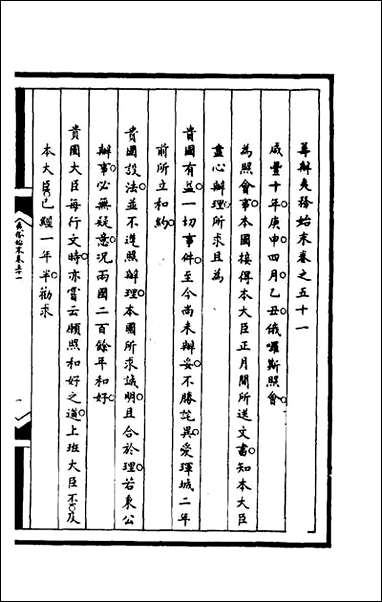 籌辦夷務始末卷之五十一
咸豐十年庚申四月乙丑俄囉斯照會
為照會事本國接得本大臣正月間所送文書知本大臣
盡心辦理所求且為
貴國有益一切事件至今尚未辦妥不勝詫異愛琿城二年
前所立和約
貴國設法並不遵照辦理本國所求誠明且合於理若秉公
辦事必無疑意況兩國二百餘年和好
貴國大臣每行文時亦嘗云頗照和好之道上班大臣不及
本大臣已經一年半勸求
夷務始末卷五十一
一